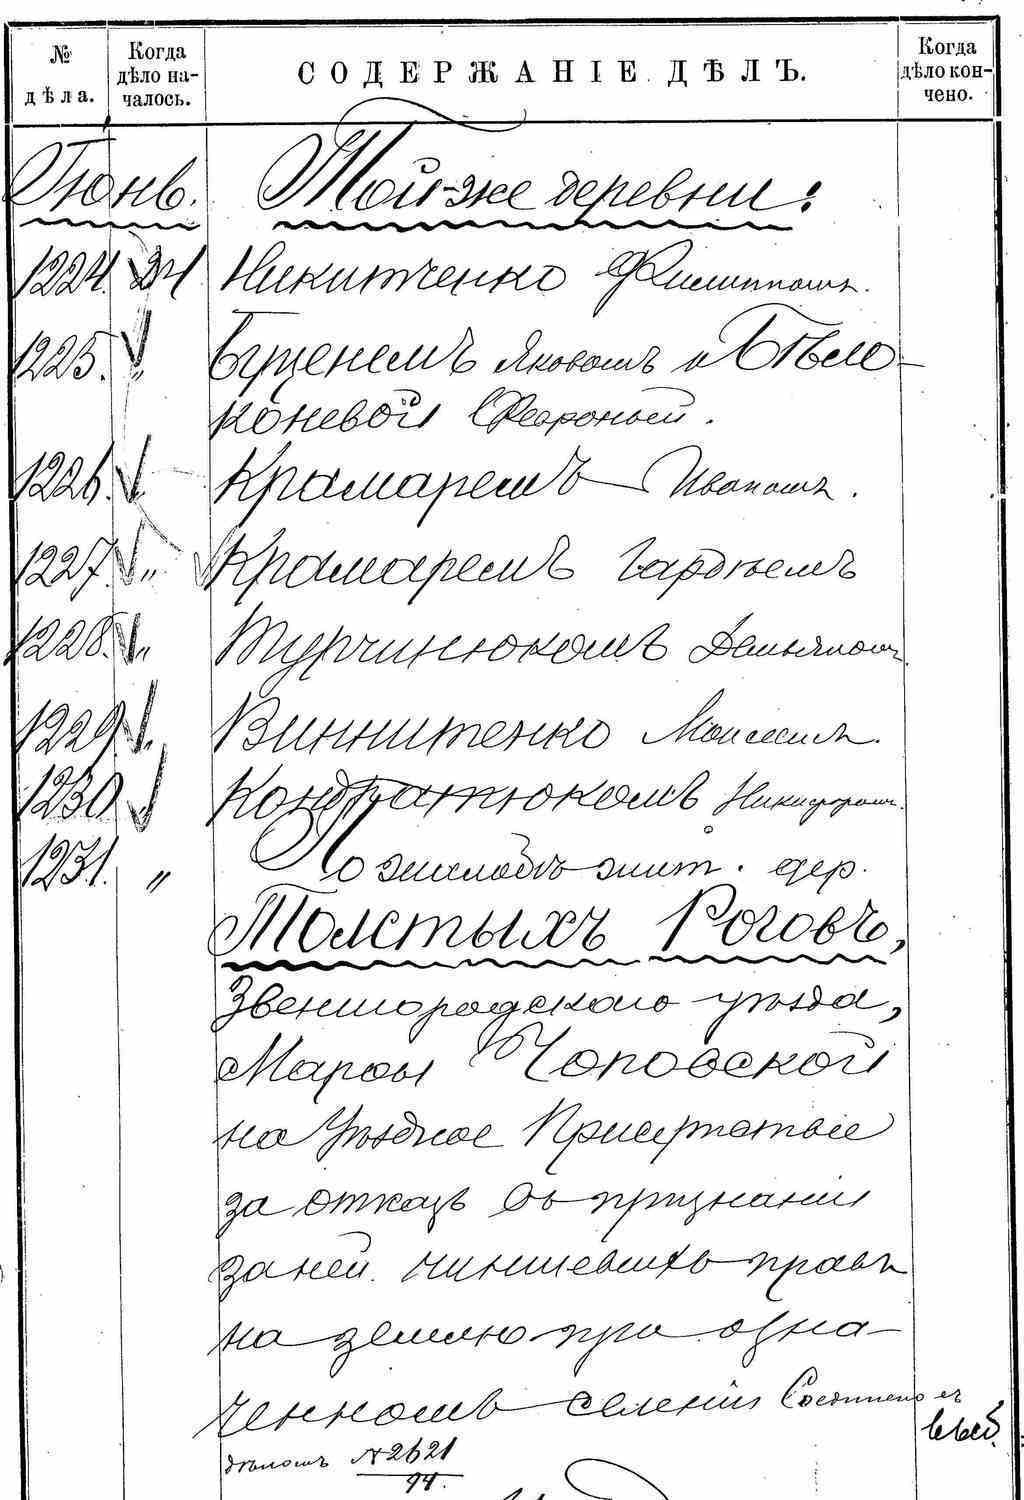 № дѣла.
Когда дѣло на-чалось.
СОДЕРЖАНІЕ ДѢЛЪ.
Когда дѣло кон-чено.
Іюнь. Той-же деревни:
1224. 24 Никитченко Филиппомъ.
1225. " Бущенемъ Яковомъ и Бѣло-
коневой Февроньей.
1226. " Крамаремъ Иваномъ.
1227. " Крамаремъ Гордѣемъ
1228. " Турчинюкомъ Демьяномъ.
1229. " Винниченко Моисеемъ.
1230. " Кондратюкомъ Никифоромъ.
1231. " По жалобѣ жит. дер.
Толстыхъ Роговъ,
Звенигородскаго уѣзда,
Марѳы Чоповской
на Уѣздное Присутствіе
за отказъ въ признаніи
за ней чиншевыхъ правъ
на землю при озна-
ченномъ селеніи Соединено съ
дѣломъ №2621
94.